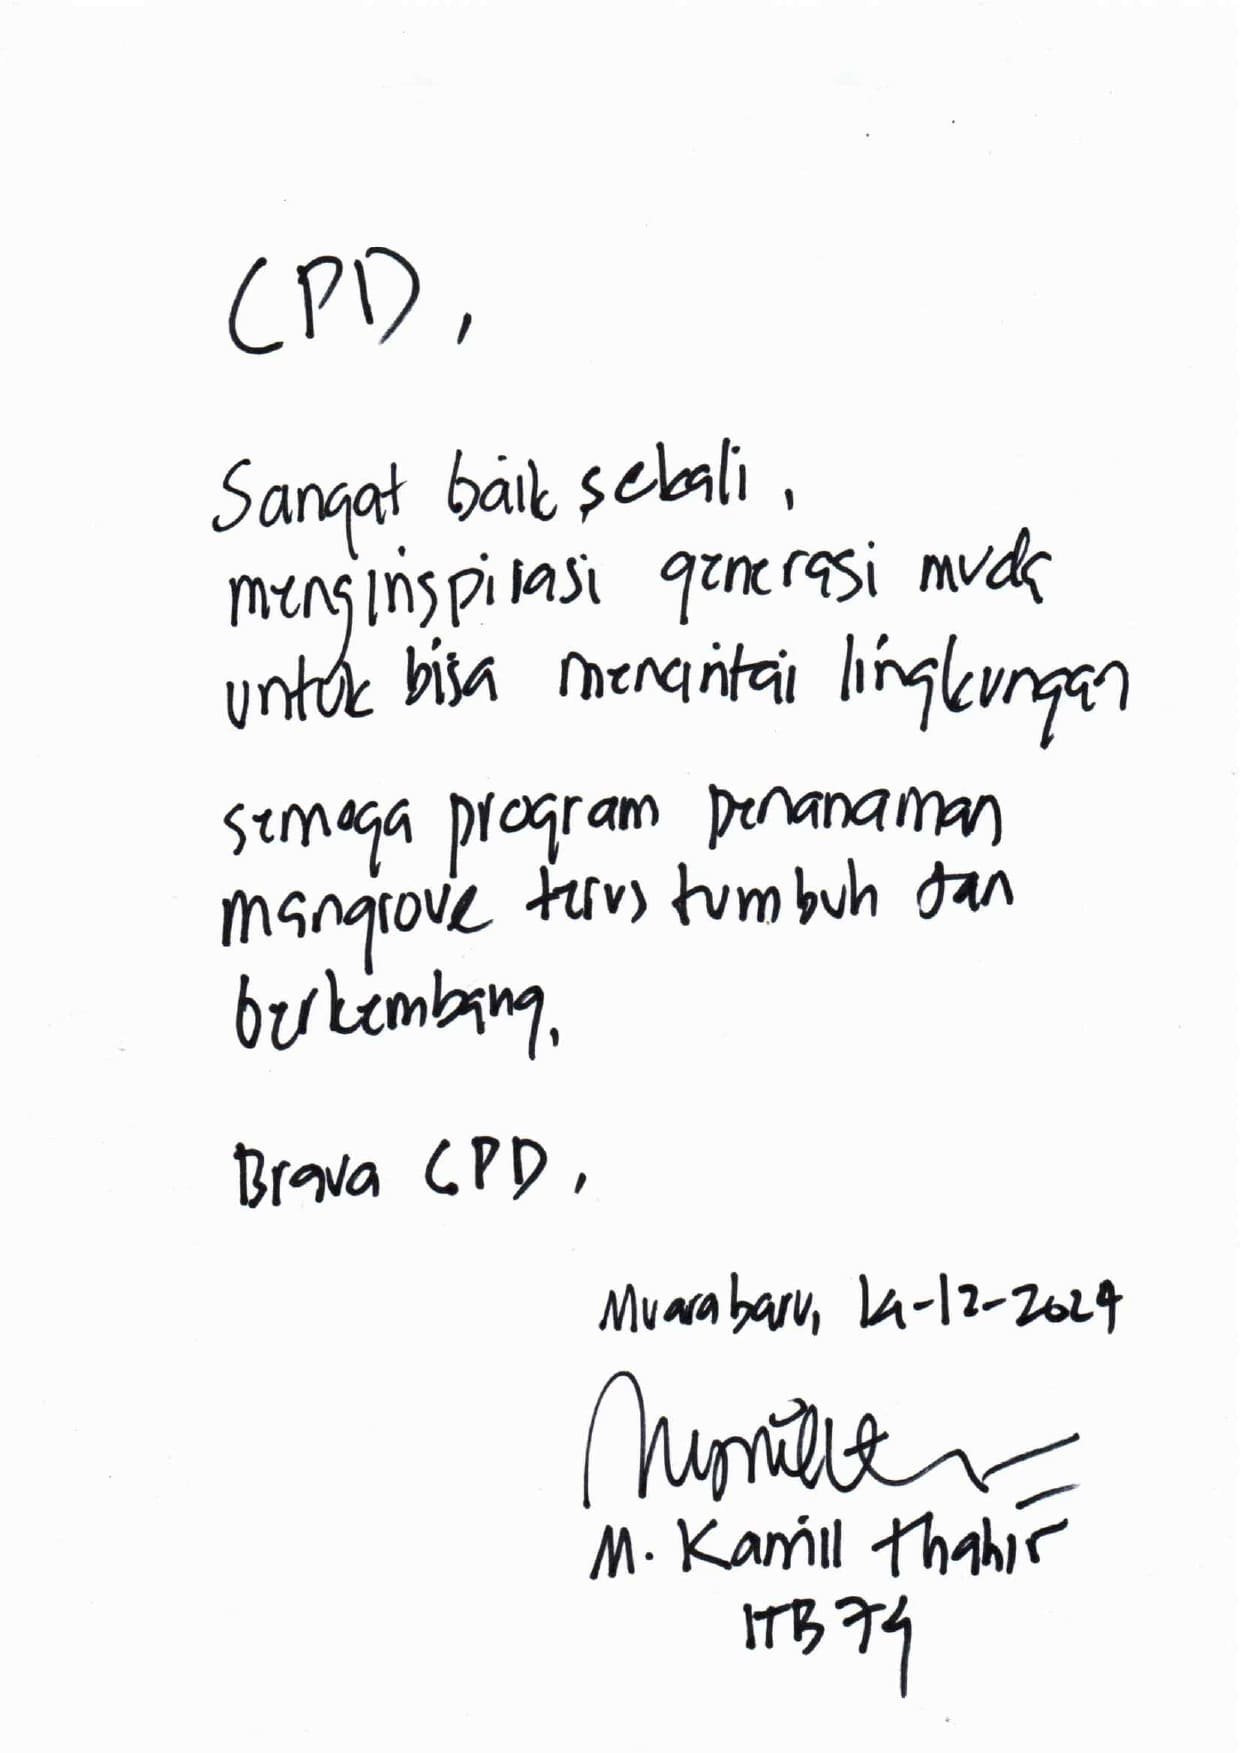 CPD,
Sangat baik sekali,
menginspirasi generasi muda
untuk bisa mencintai lingkungan
semoga program penanaman
mangrove terus tumbuh dan
berkembang,
Brava CPD,
Muarabaru, 14-12-2024
M. Kamill Thahir
ITB 79